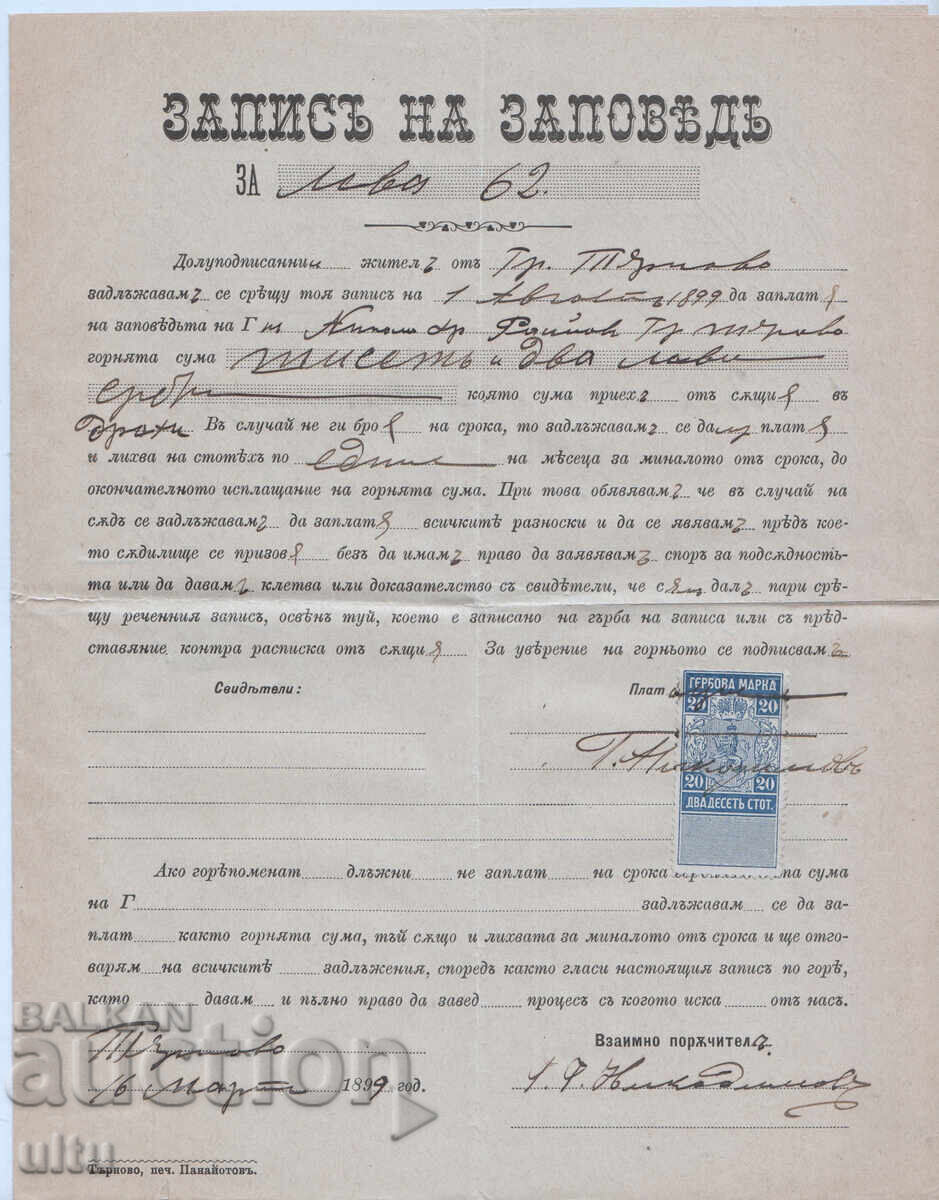 ЗАПИСЪ НА ЗАПОВѢДЬ
ЗА Лева 62.
Долуподписанния жителъ отъ Гр. Търново
задлъжавамъ се срѣщу тоя запис на 1 Августъ 1899 да заплатѭ
на заповѣдьта на Г нъ Гр Търново
горнята сума шисетъ и два лева
сребр която сума приехъ отъ сѫщия въ
Въ случай не ги броѭ на срока, то задлъжавамъ се да му платѭ
и лихва на стотѣхъ по на мѣсеца за миналото отъ срока, до
окончателното исплащание на горнята сума. При това обявявамъ че въ случай на
сѫдъ се задлъжавамъ да заплатѭ всичкитѣ разноски и да се явявамъ прѣдъ кое-
то сѫдилище се призовѭ безъ да имамъ право да заявявамъ споръ за подсѫдность-
та или да давамъ клетва или доказателство съ свидѣтели, че съмъ далъ пари срѣ-
щу речения запис, освѣнъ туй, което е записано на гърба на записа или съ прѣд-
ставяние контра расписка отъ сѫщия За увѣрение на горньото се подписвамъ
Свидѣтели: Плат
ГЕРБОВА МАРКА
20 20
20 20
ДВАДЕСЕТЬ СТОТ.
Ако горѣпоменат длъжни не заплат на срока та сума
на Г задлъжавам се да за-
плат както горнята сума, тъй сѫщо и лихвата за миналото отъ срока и ще отго-
варям на всичкитѣ задлъжения, споредъ както гласи настоящия запис по горѣ,
като давам и пълно право да завед процесъ съ когото иска отъ насъ.
Търново Взаимно порѫчителъ
16 Мартъ 1899 год. Никодимовъ
Търново, печ. Панайотовъ.
BALKAN
auction
ultu